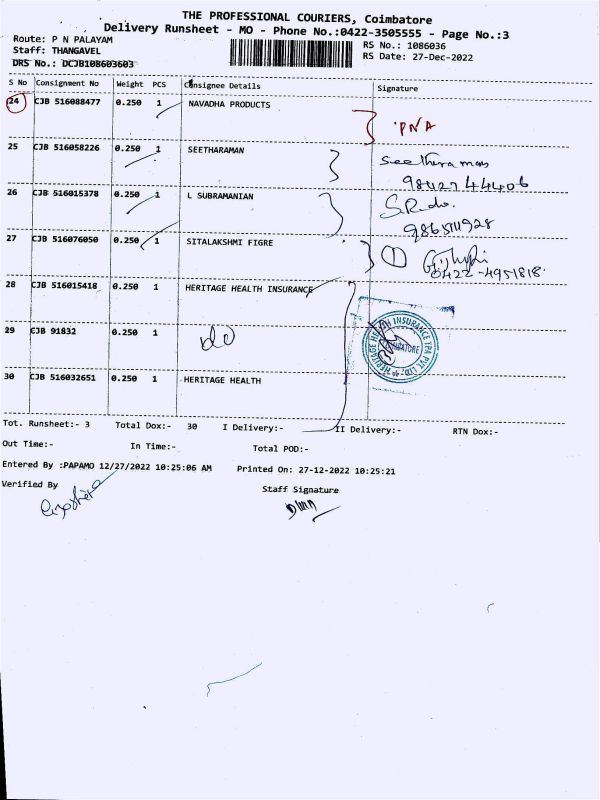 THE PROFESSIONAL COURIERS, Coimbatore
Delivery Runsheet - MO - Phone No.:0422-3505555 - Page No.:3
Route: P N PALAYAM
RS No.: 1086036
Staff: THANGAVEL
RS Date: 27-Dec-2022
DRS No.: DCJB108603603
S No Consignment No Weight PCS Consignee Details Signature
24 CJB 516088477 0.250 1 NAVADHA PRODUCTS
PNA
25 CJB 516058226 0.250 1 SEETHARAMAN
Seetharaman
9842744406
26 CJB 516015378 0.250 1 L SUBRAMANIAN
27 CJB 516076050 0.250 1 SITALAKSHMI FIGRE
1
0422-4951818.
28 CJB 516015418 0.250 1 HERITAGE HEALTH INSURANCE
HERITAGE HEALTH INSURANCE TPA PVT. LTD.
COIMBATORE
29 CJB 91832 0.250 1 do
30 CJB 516032651 0.250 1 HERITAGE HEALTH
Tot. Runsheet:- 3 Total Dox:- 30 I Delivery:- II Delivery:- RTN Dox:-
Out Time:- In Time:- Total POD:-
Entered By :PAPAMO 12/27/2022 10:25:06 AM Printed On: 27-12-2022 10:25:21
Verified By Staff Signature